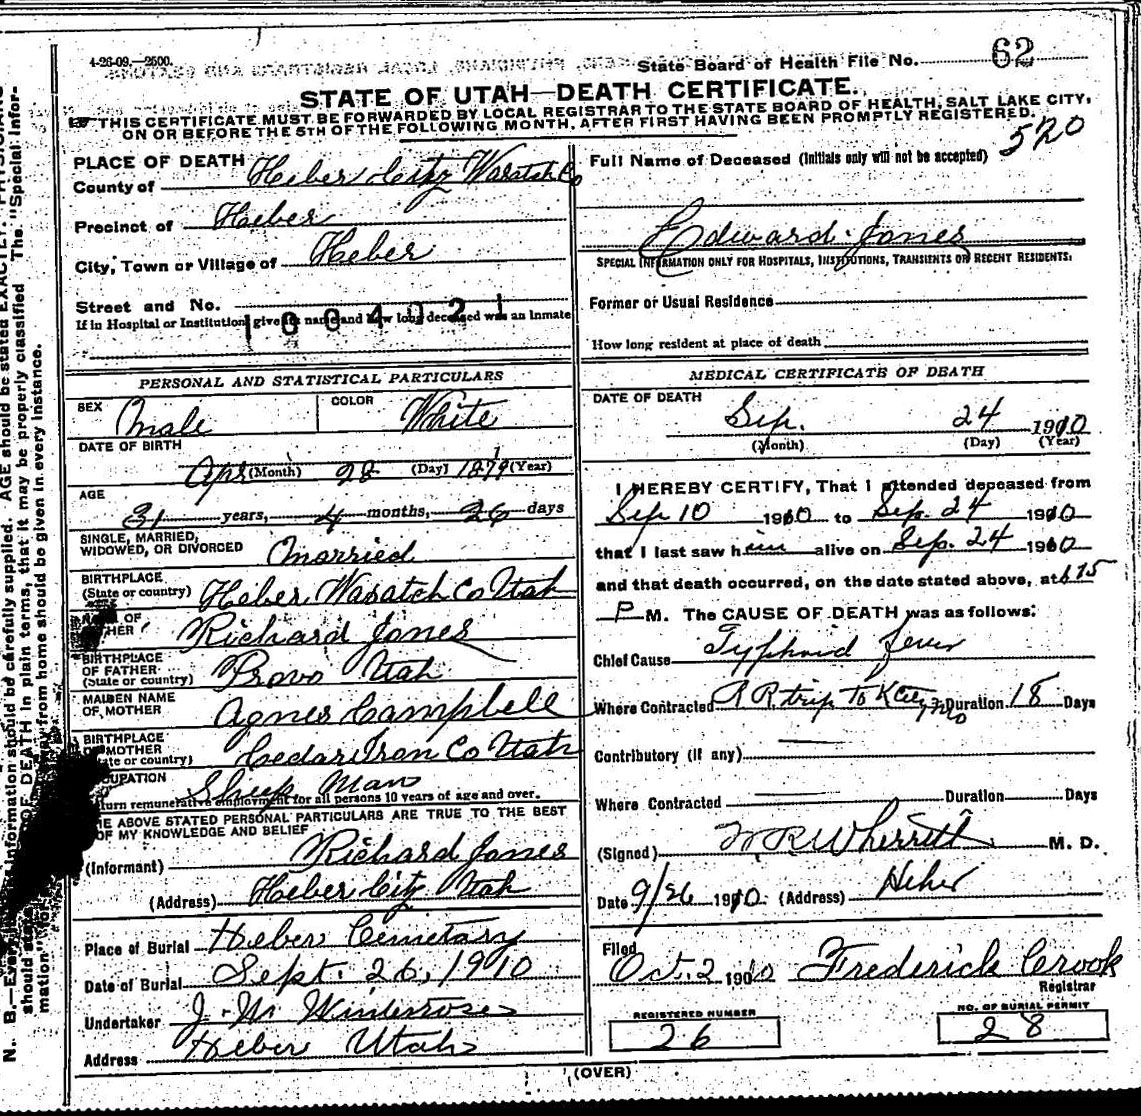 4-26-09.—2500.
State Board of Health File No. 62
STATE OF UTAH—DEATH CERTIFICATE.
THIS CERTIFICATE MUST BE FORWARDED BY LOCAL REGISTRAR TO THE STATE BOARD OF HEALTH, SALT LAKE CITY,
ON OR BEFORE THE 5TH OF THE FOLLOWING MONTH, AFTER FIRST HAVING BEEN PROMPTLY REGISTERED.
520
PLACE OF DEATH
County of Heber City Wasatch Co
Precinct of Heber
City, Town or Village of Heber
Street and No.
1004021
If in Hospital or Institution, give its name and how long deceased was an inmate
Full Name of Deceased (Initials only will not be accepted)
Edward Jones
SPECIAL INFORMATION ONLY FOR HOSPITALS, INSTITUTIONS, TRANSIENTS OR RECENT RESIDENTS:
Former or Usual Residence
How long resident at place of death
PERSONAL AND STATISTICAL PARTICULARS
SEX Male COLOR White
DATE OF BIRTH
Apr (Month) 28 (Day) 1879 (Year)
AGE
31 years, 4 months, 26 days
SINGLE, MARRIED,
WIDOWED, OR DIVORCED Married
BIRTHPLACE
(State or country) Heber Wasatch Co Utah
NAME OF
FATHER Richard Jones
BIRTHPLACE
OF FATHER
(State or country) Provo Utah
MAIDEN NAME
OF MOTHER Agnes Campbell
BIRTHPLACE
OF MOTHER
(State or country) Cedar Iron Co Utah
OCCUPATION Sheep Man
Return remunerative employment for all persons 10 years of age and over.
THE ABOVE STATED PERSONAL PARTICULARS ARE TRUE TO THE BEST
OF MY KNOWLEDGE AND BELIEF
(Informant) Richard Jones
(Address) Heber City Utah
Place of Burial Heber Cemetary
Date of Burial Sept. 26, 1910
Undertaker J. W. Winterose
Address Heber Utah
MEDICAL CERTIFICATE OF DEATH
DATE OF DEATH
Sep. 24 1910
(Month) (Day) (Year)
I HEREBY CERTIFY, That I attended deceased from
Sep 10 1910 to Sep. 24 1910
that I last saw him alive on Sep. 24 1910
and that death occurred, on the date stated above, at 6 15
P M. The CAUSE OF DEATH was as follows:
Chief Cause Typhoid fever
Where Contracted R R trip To K City Mo Duration 18 Days
Contributory (if any)
Where Contracted Duration Days
(Signed) W R Wherritt M. D.
Date 9/26 1910. (Address) Heber
Filed
Oct. 2 1910 Frederick Crook
Registrar
REGISTERED NUMBER
26
NO. OF BURIAL PERMIT
28
(OVER)
AGE should be stated EXACTLY. PHYSICIANS
information should be carefully supplied.
OF DEATH in plain terms, that it may be properly classified. The "Special Infor-
away from home should be given in every instance.